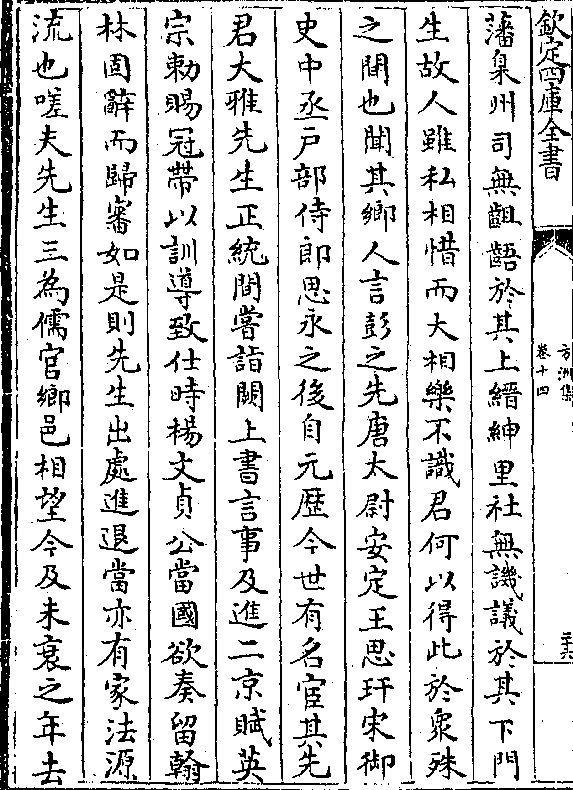 欽定四庫全書
方洲集
卷十四
二十六
藩臬州司無齟齬於其上縉紳里社無譏議於其下門
生故人雖私相惜而大相樂不識君何以得此於衆殊
之間也聞其鄉人言彭之先唐太尉安定王思玕宋御
史中丞戸部侍郎思永之後自元歴今世有名宦其先
君大雅先生正統間嘗詣闕上書言事及進二京賦英
宗勅賜冠帶以訓導致仕時楊文貞公當國欲奏留翰
林固辭而歸審如是則先生出處進退當亦有家法源
流也嗟夫先生三為儒官鄉邑相望今及未衰之年去